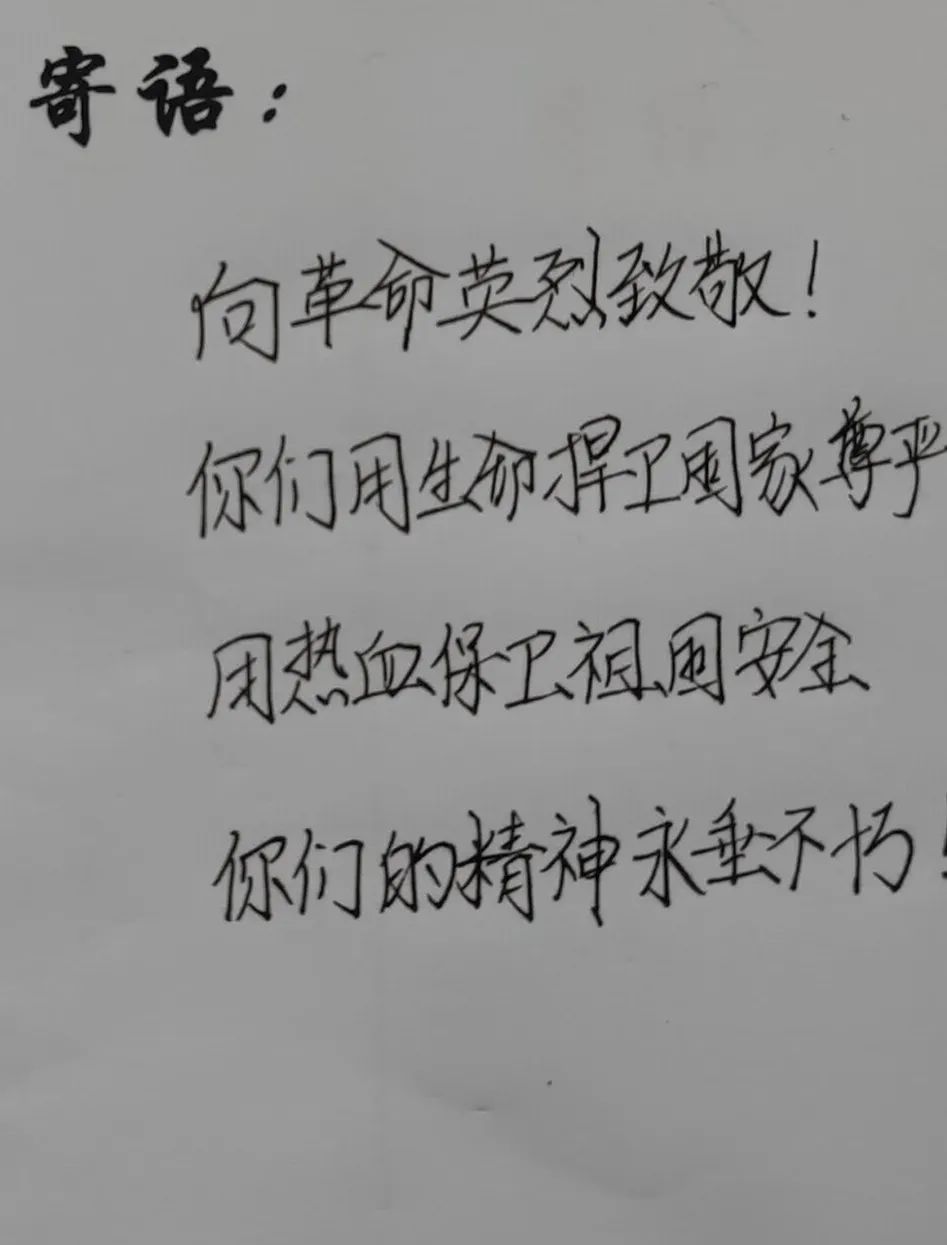 寄语：
向革命英烈致敬！
你们用生命捍卫国家尊严
用热血保卫祖国安全
你们的精神永垂不朽！